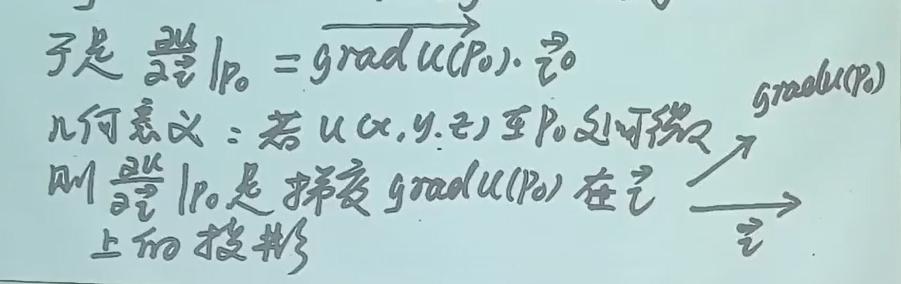 于是 ∂u/∂l⃗ |P₀ = grad u(P₀) · l⃗⁰
几何意义：若 u(x,y,z) 至 P₀ 处可微
则 ∂u/∂l⃗ |P₀ 是梯度 grad u(P₀) 在 l⃗
上的投影
grad u(P₀)
l⃗